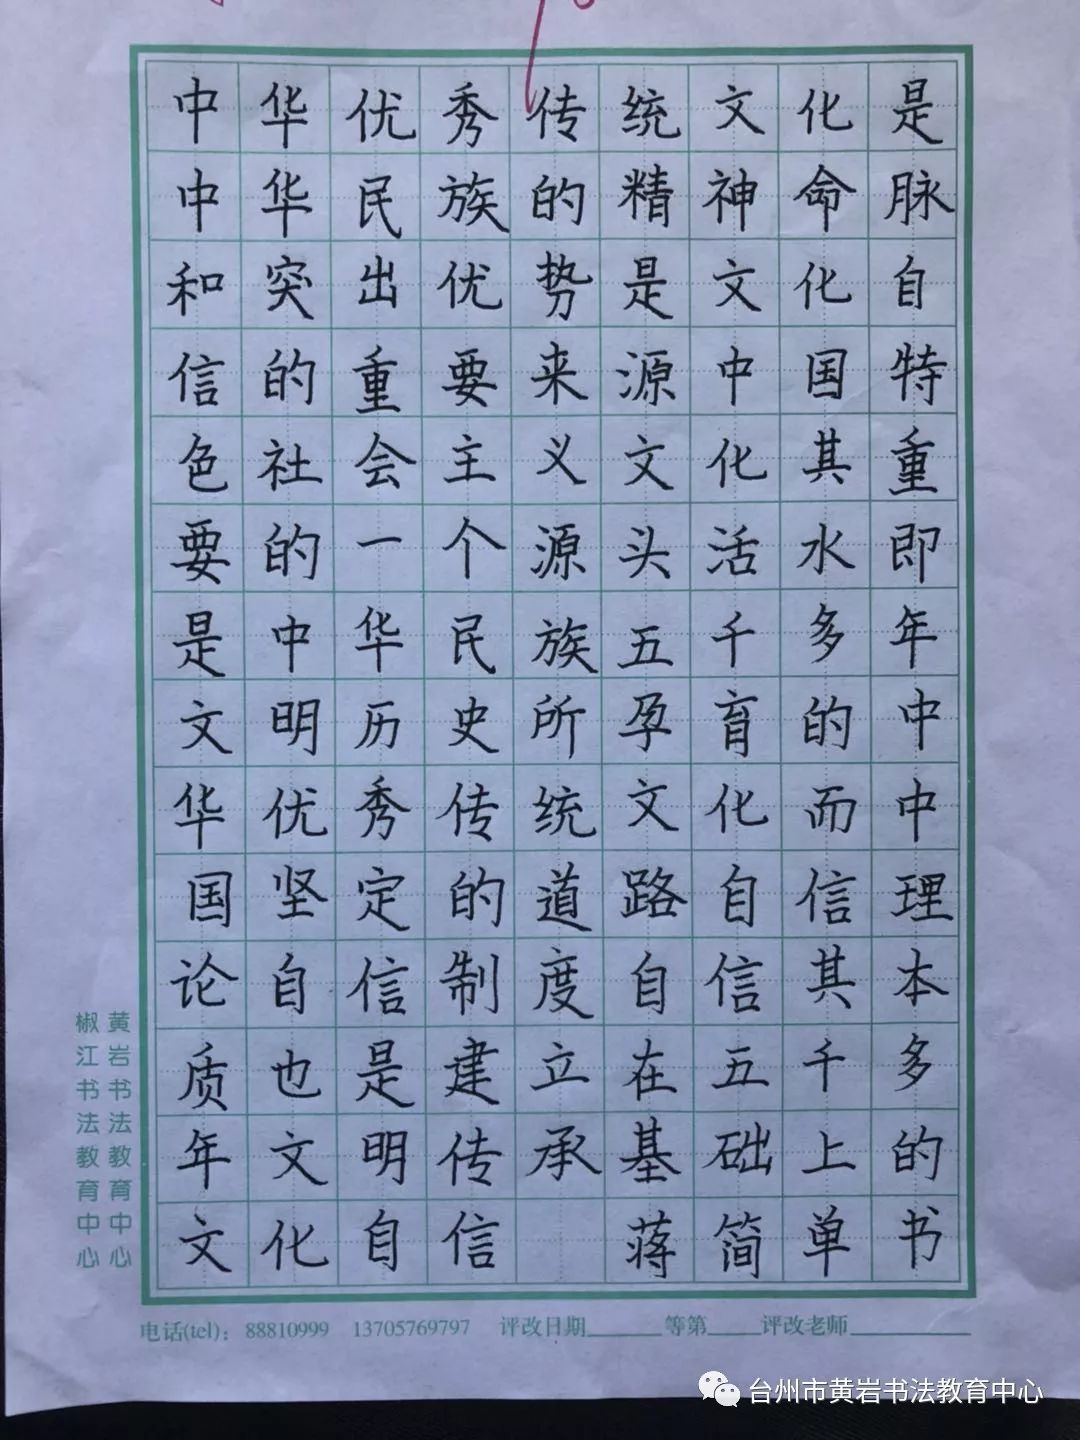 中华优秀传统文化是
中华民族的精神命脉
和突出优势是文化自
信的重要来源中国特
色社会主义文化其重
要的一个源头活水即
是中华民族五千多年
文明历史所孕育的中
华优秀传统文化而中
国坚定的道路自信理
论自信制度自信其本
质也是建立在五千多
年文明传承基础上的
文化自信 蒋简单书
黄岩书法教育中心
椒江书法教育中心
电话(tel): 88810999 13705769797 评改日期______等第____评改老师__________
台州市黄岩书法教育中心